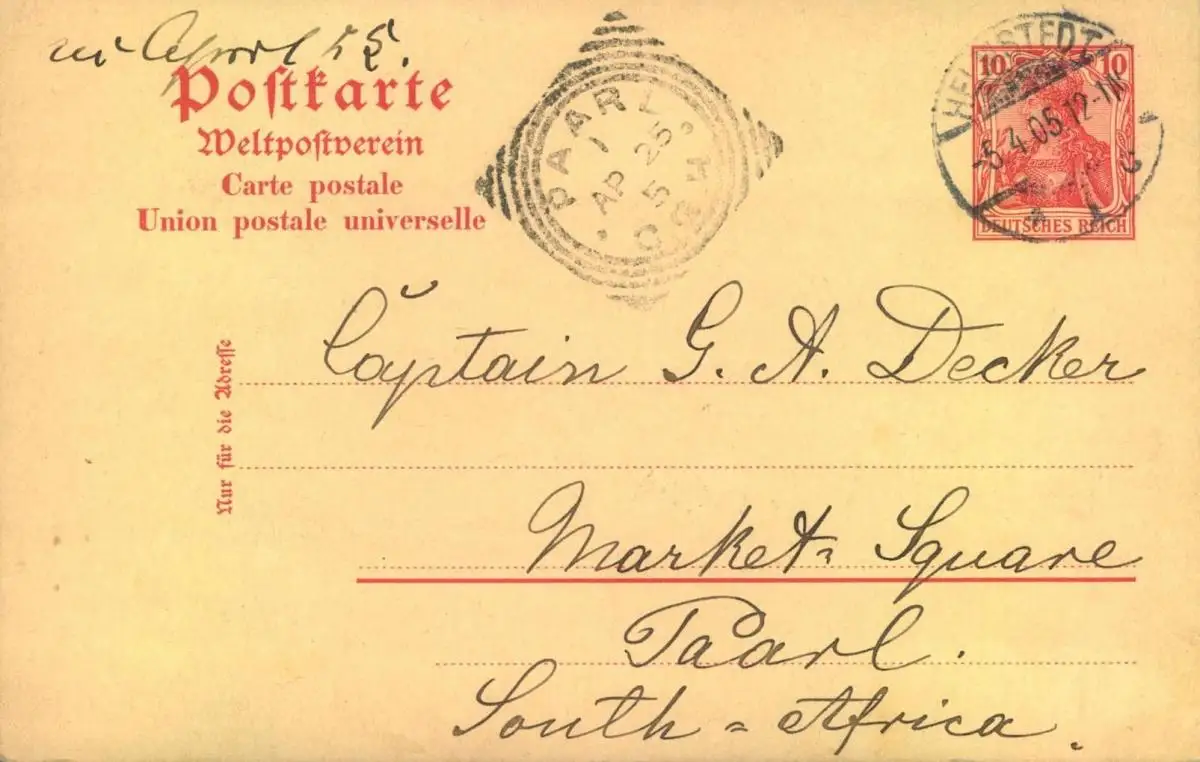 April 25.
Poſtkarte
Weltpoſtverein
Carte postale
Union postale universelle
PAARL
1
AP 25
5
C.G.H
10 10
DEUTSCHES REICH
HELMSTEDT
-6.4.05.12-1N.
Nur für die Adreſſe
Captain G. A. Decker
Market-Square
Paarl.
South-Africa.